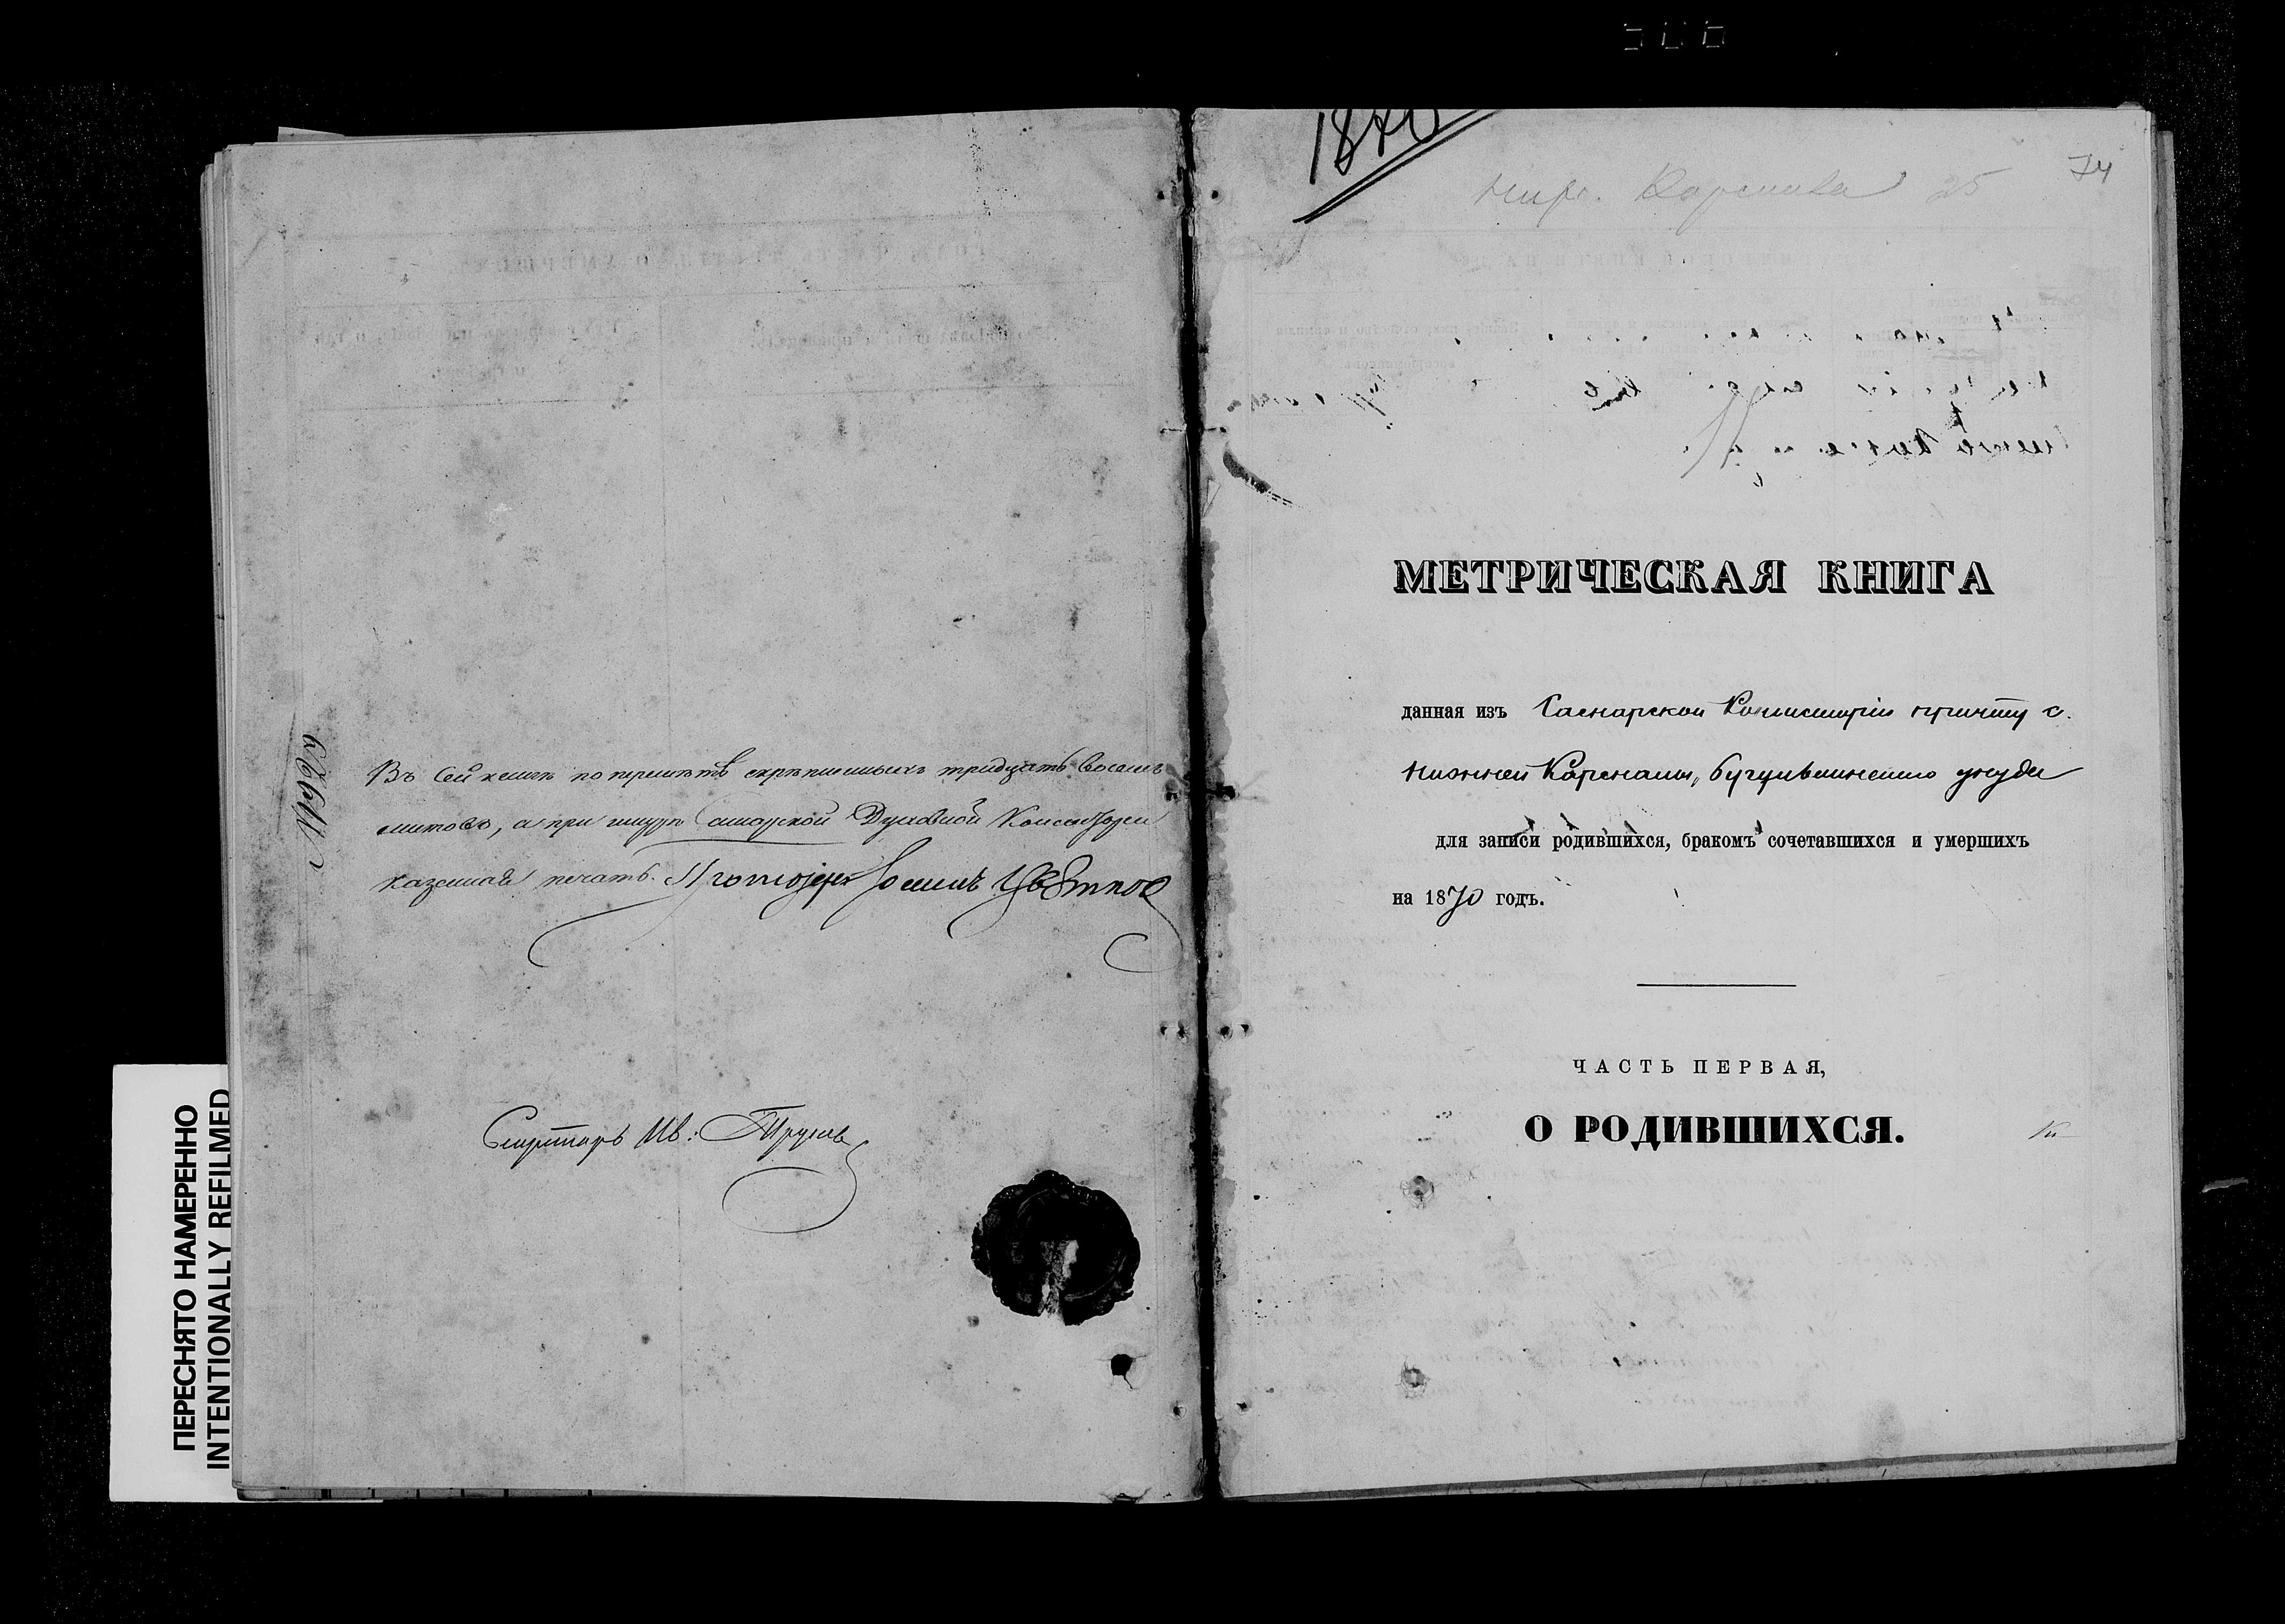 ПЕРЕСНЯТО НАМЕРЕННО
INTENTIONALLY REFILMED
Въ сей книгѣ по перечетѣ скрѣпленныхъ тридцать восемь
листовъ, а при шнурѣ Самарской Духовной Консисторіи
казенная печать. Протоіерей Іоаннъ Цвѣтков
Секретарь Ив:
1870
74
Ниж. 25
МЕТРИЧЕСКАЯ КНИГА
данная изъ Самарской Консисторіи причту с.
Нижней Кармалы, Бугульминскаго уѣзда
для записи родившихся, бракомъ сочетавшихся и умершихъ
на 1870 годъ.
ЧАСТЬ ПЕРВАЯ,
О РОДИВШИХСЯ.